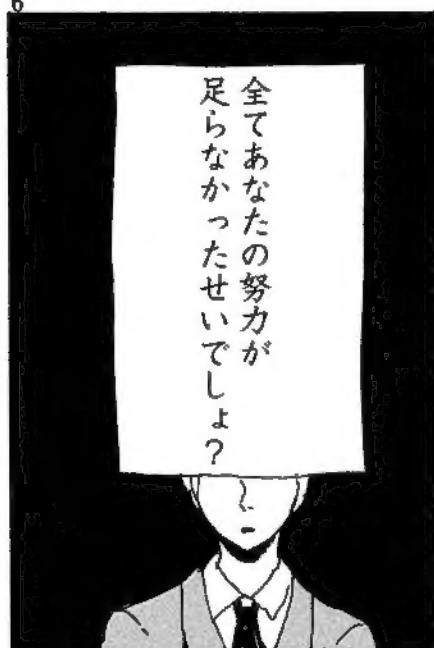 6
全てあなたの努力が
足らなかったせいでしょ?